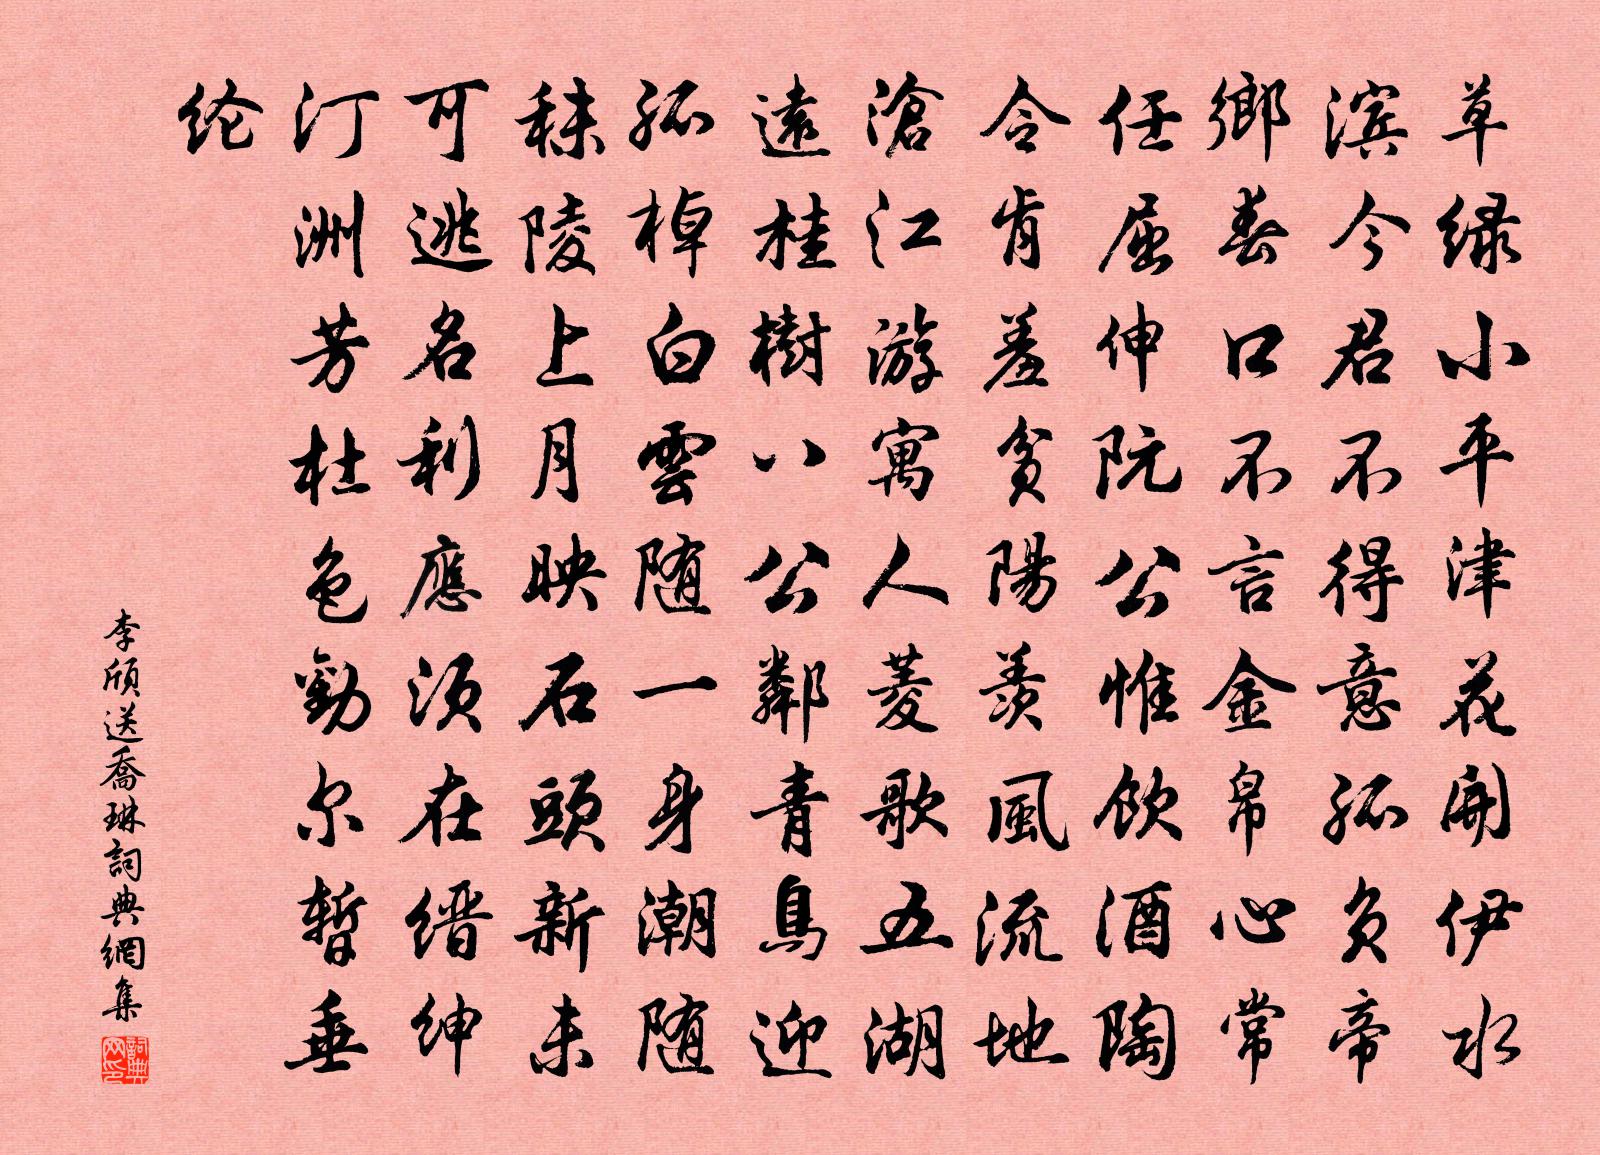 草绿小平津花開伊水
滨今君不得意孤负帝
鄉春口不言金帛心常
任屈伸阮公惟飲酒陶
令肯羞贫陽羨風流地
滄江游寓人菱歌五湖
遠桂樹八公鄰青鳥迎
孤棹白雲随一身潮随
秣陵上月映石頭新未
可逃名利應須在缙绅
汀洲芳杜色勸尔暫垂
纶
李頎送喬琳詞典網集
詞典网印